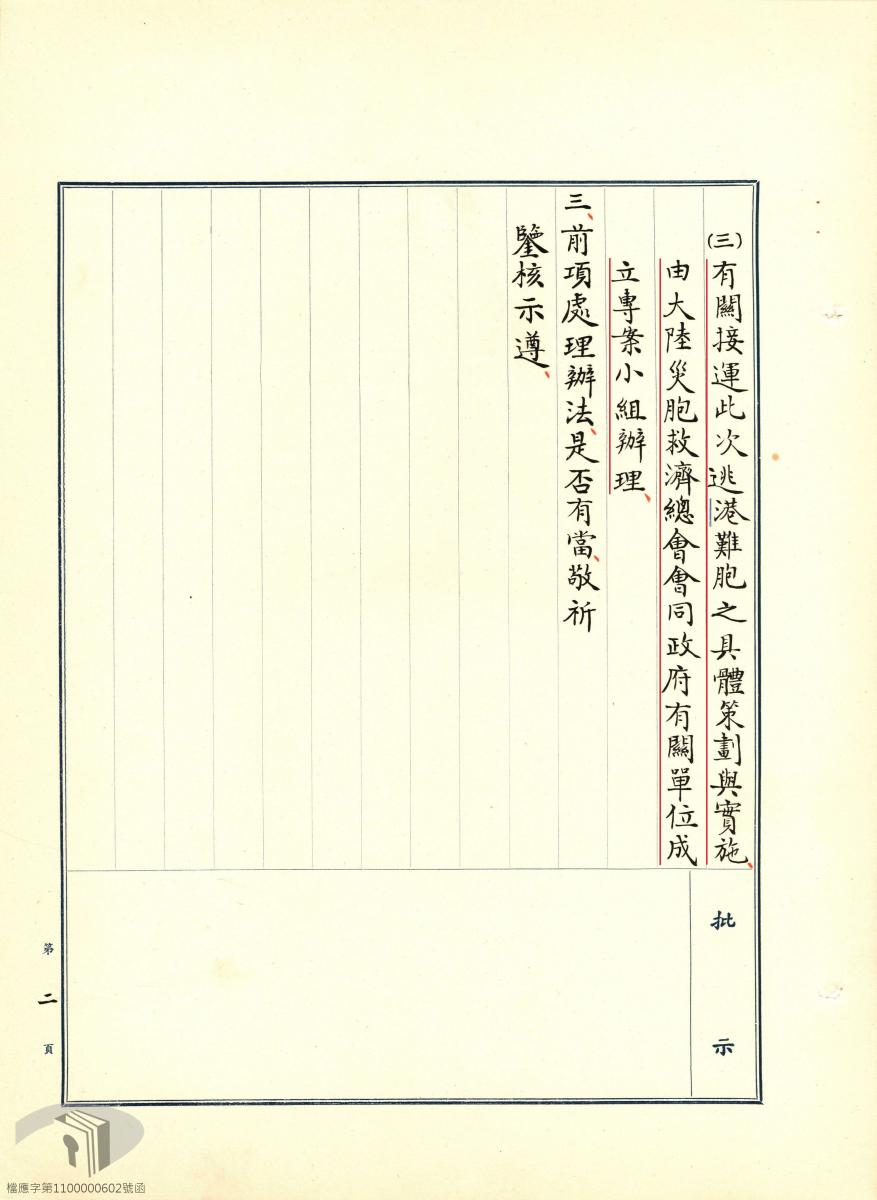 (三)有關接運此次逃港難胞之具體策劃與實施、
由大陸災胞救濟總會會同政府有關單位成
立專案小組辦理、
三、前項處理辦法、是否有當、敬祈
鑒核示遵、
批示
第二頁
檔應字第1100000602號函